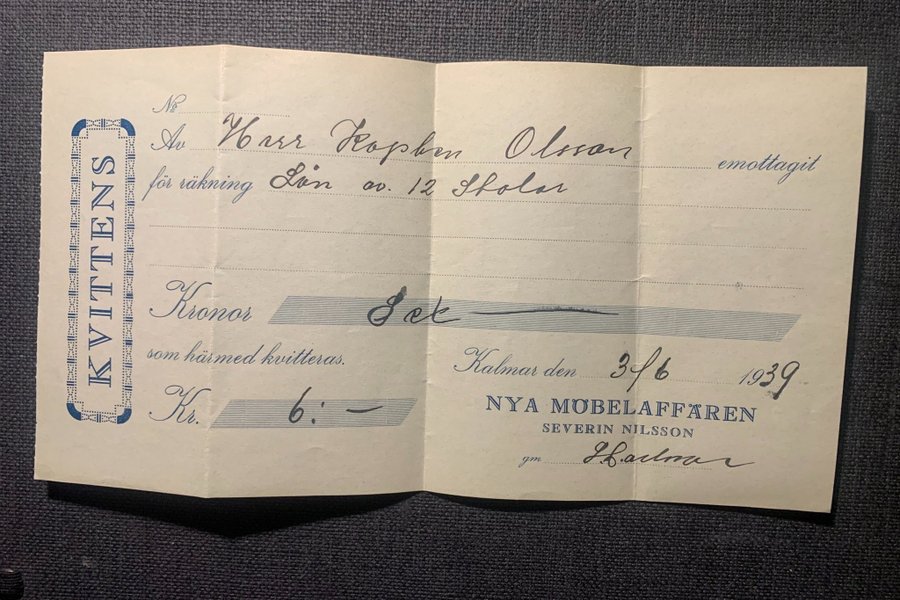 KVITTENS
No
Av Herr Kapten Olsson emottagit
för räkning Lån av. 12 Stolar
Kronor Sex
som härmed kvitteras.
Kalmar den 3/6 1939
Kr. 6:-
NYA MÖBELAFFÄREN
SEVERIN NILSSON
gm